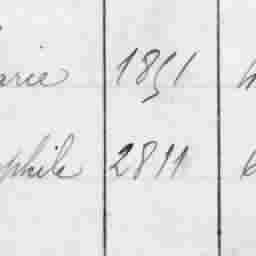 arie 1851 4
phile 2811 6